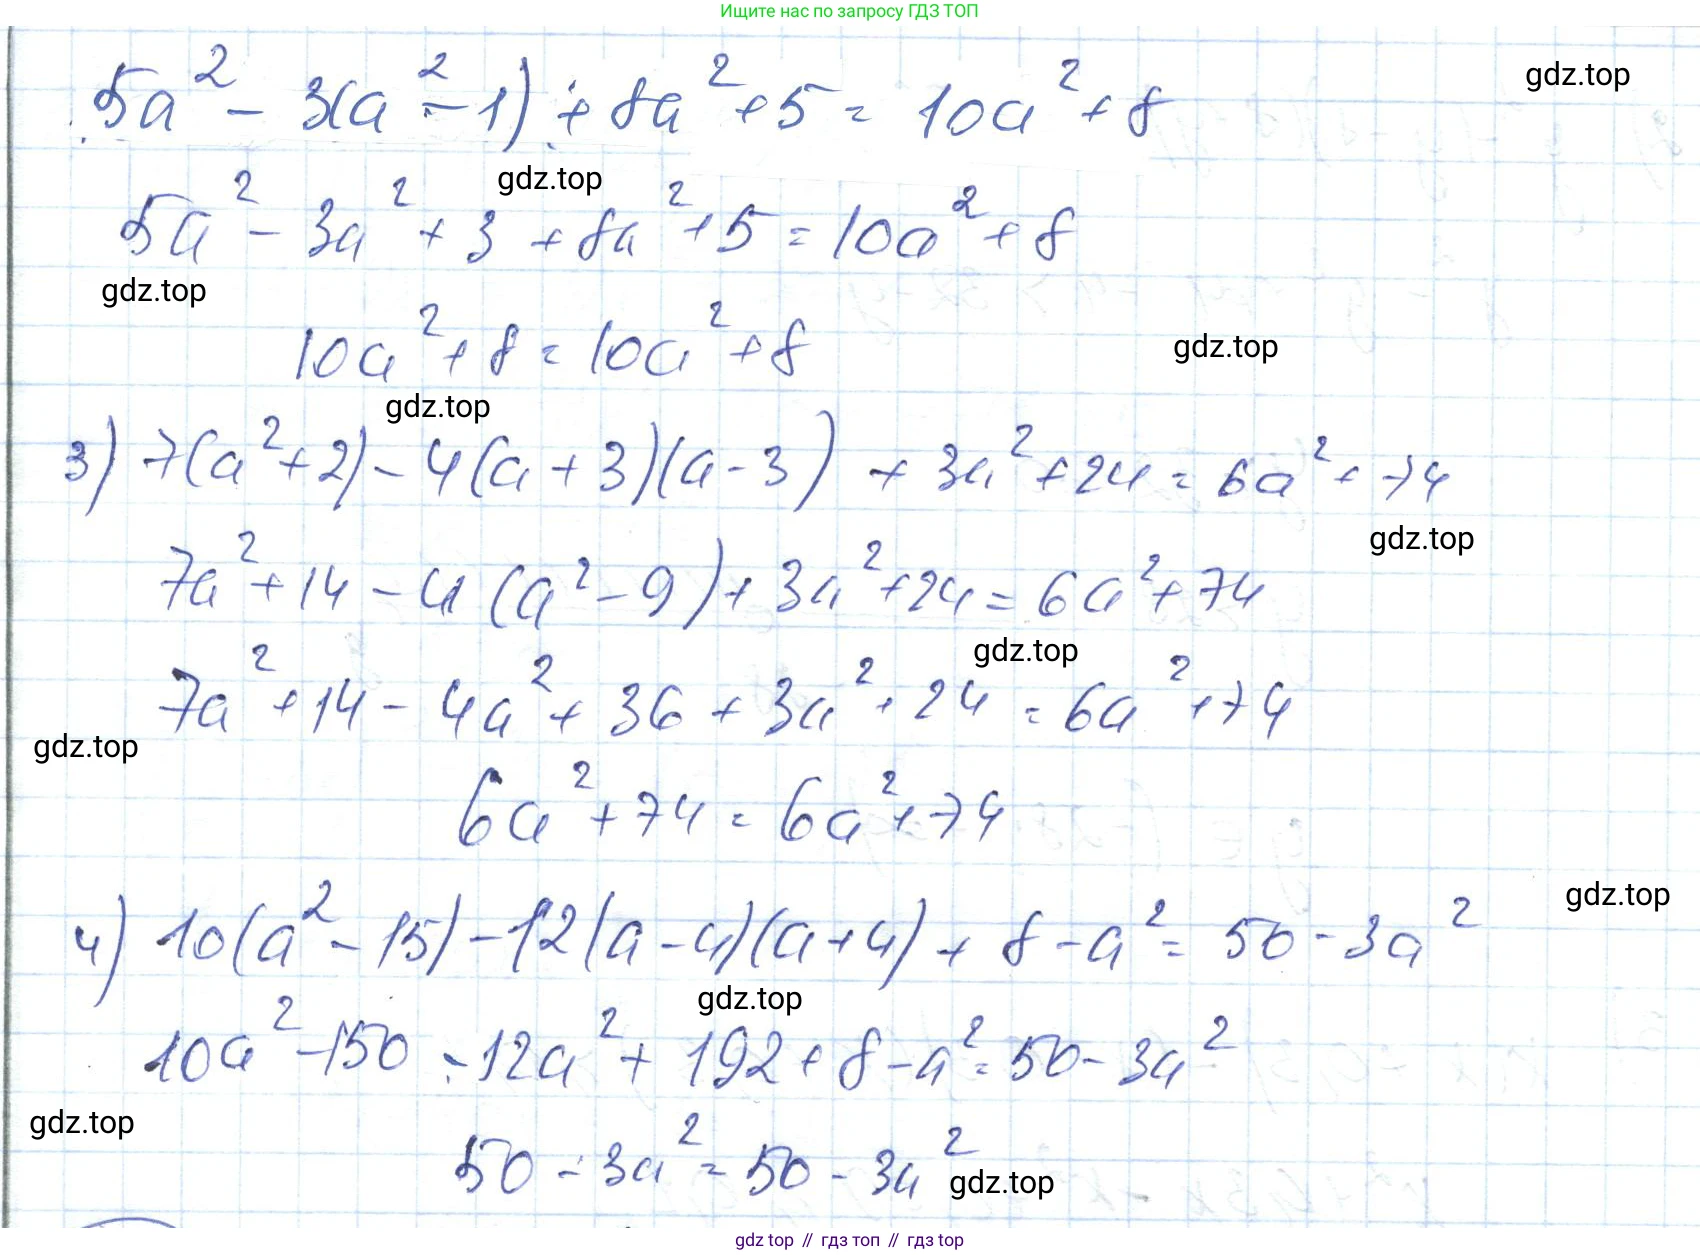 Ищите нас по запросу ГДЗ ТОП
5a² - 3(a² - 1) + 8a² + 5 = 10a² + 8
gdz.top
gdz.top
5a² - 3a² + 3 + 8a² + 5 = 10a² + 8
gdz.top
10a² + 8 = 10a² + 8
gdz.top
gdz.top
3) 7(a² + 2) - 4(a + 3)(a - 3) + 3a² + 24 = 6a² + 74
gdz.top
7a² + 14 - 4(a² - 9) + 3a² + 24 = 6a² + 74
gdz.top
7a² + 14 - 4a² + 36 + 3a² + 24 = 6a² + 74
gdz.top
6a² + 74 = 6a² + 74
gdz.top
4) 10(a² - 15) - 12(a - 4)(a + 4) + 8 - a² = 50 - 3a²
gdz.top
10a² - 150 - 12a² + 192 + 8 - a² = 50 - 3a²
gdz.top
50 - 3a² = 50 - 3a²
gdz.top
gdz top // гдз топ // гдз top